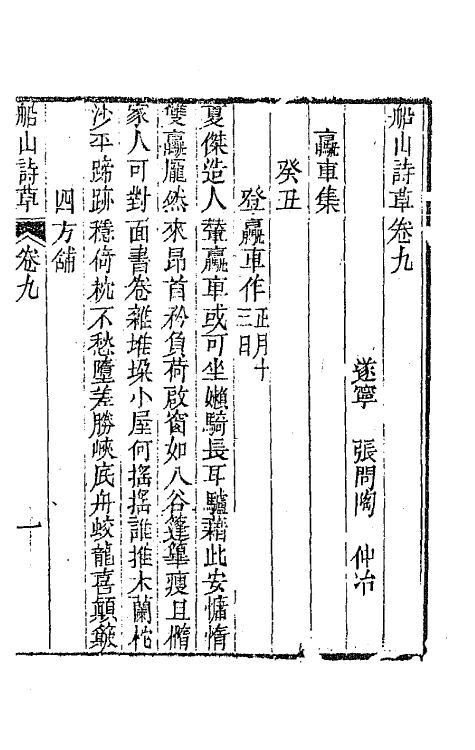 船山詩草卷九
遂寧 張問陶 仲冶
驘車集
癸丑
登驘車作正月十三日
夏傑造人輦驘車或可坐嬾騎長耳驢藉此安慵惰
雙驘龎然來昂首矜負荷啟窗如八谷篷篳瘦且橢
家人可對面書卷雜堆垛小屋何搖搖誰推木蘭柁
沙平蹄跡穩倚枕不愁墮差勝峽底舟蛟龍喜顛簸
四方舖
船山詩草 卷九 一